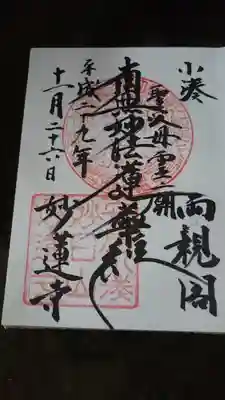 小湊
両親閣
聖父母霊廟
南無妙法蓮華経
平成二九年
十一月二十六日
妙蓮寺